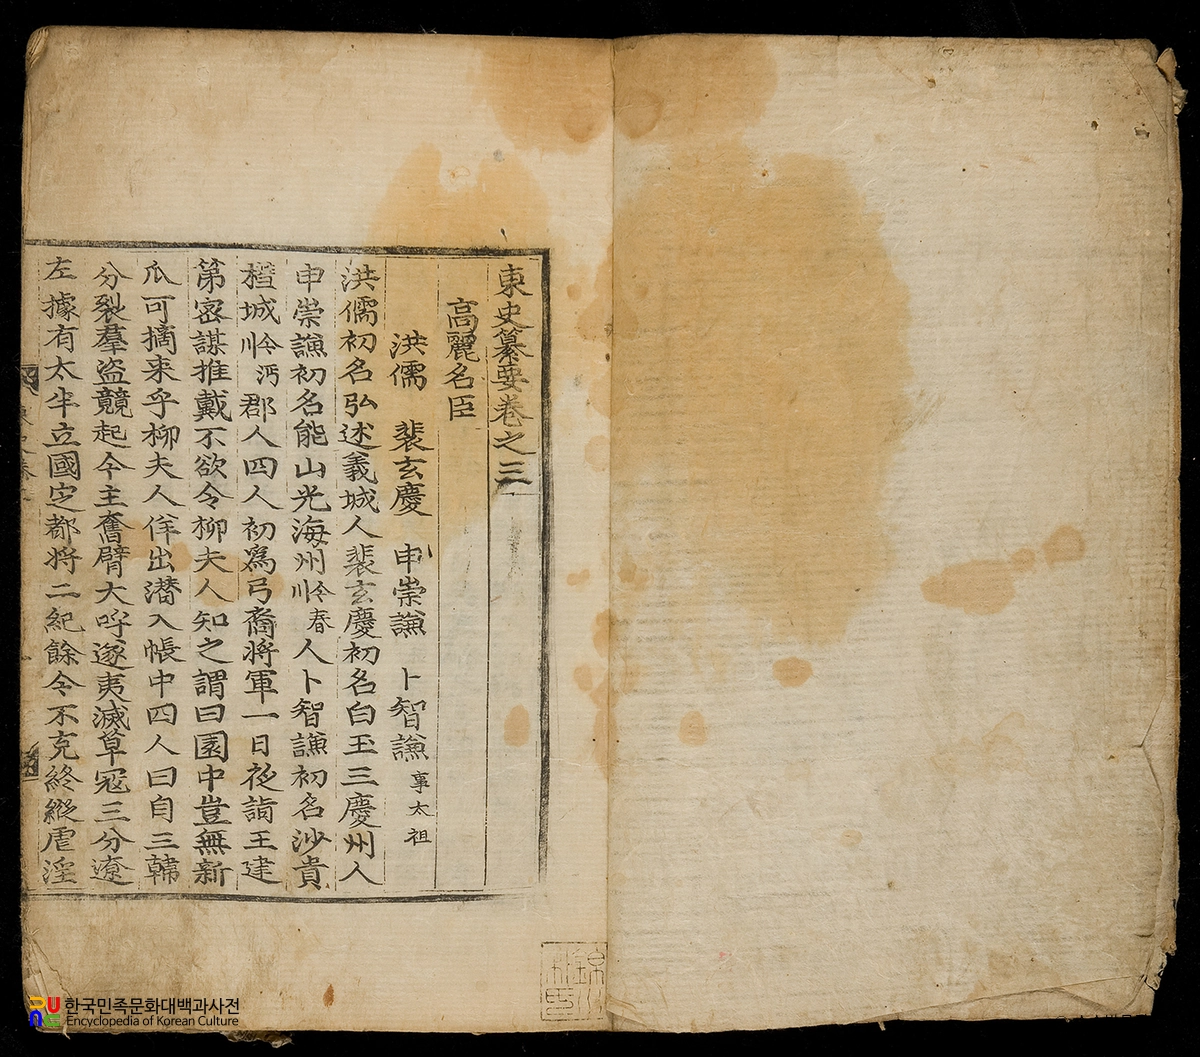 東史纂要卷之三
高麗名臣
洪儒 裴玄慶 申崇謙 卜智謙 事太祖
洪儒初名弘述義城人裴玄慶初名白玉三慶州人
申崇謙初名能山光海州今春川人卜智謙初名沙貴
橙城今沔川郡人四人初爲弓裔將軍一日夜詣王建
第密謀推戴不欲令柳夫人知之謂曰園中豈無新
瓜可摘來乎柳夫人佯出潜入帳中四人曰自三韓
分裂羣盗競起今主奮臂大呼遂夷滅草寇三分遼
左據有太半立國定都將二紀餘今不克終縱虐淫
한국민족문화대백과사전
Encyclopedia of Korean Culture